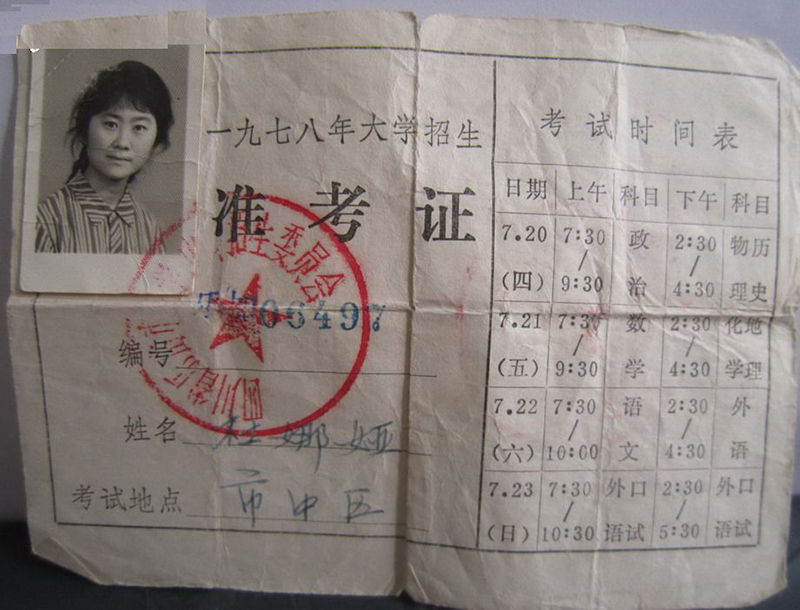 一九七八年大学招生
准考证
委员会
四川省
06497
编号
姓名 杜娜娅
考试地点 市中区
考试时间表
日期 上午 科目 下午 科目
7.20 (四) 7:30/9:30 政治 2:30/4:30 物理 历史
7.21 (五) 7:30/9:30 数学 2:30/4:30 化学 地理
7.22 (六) 7:30/10:00 语文 2:30/4:30 外语
7.23 (日) 7:30/10:30 外语口试 2:30/5:30 外语口试